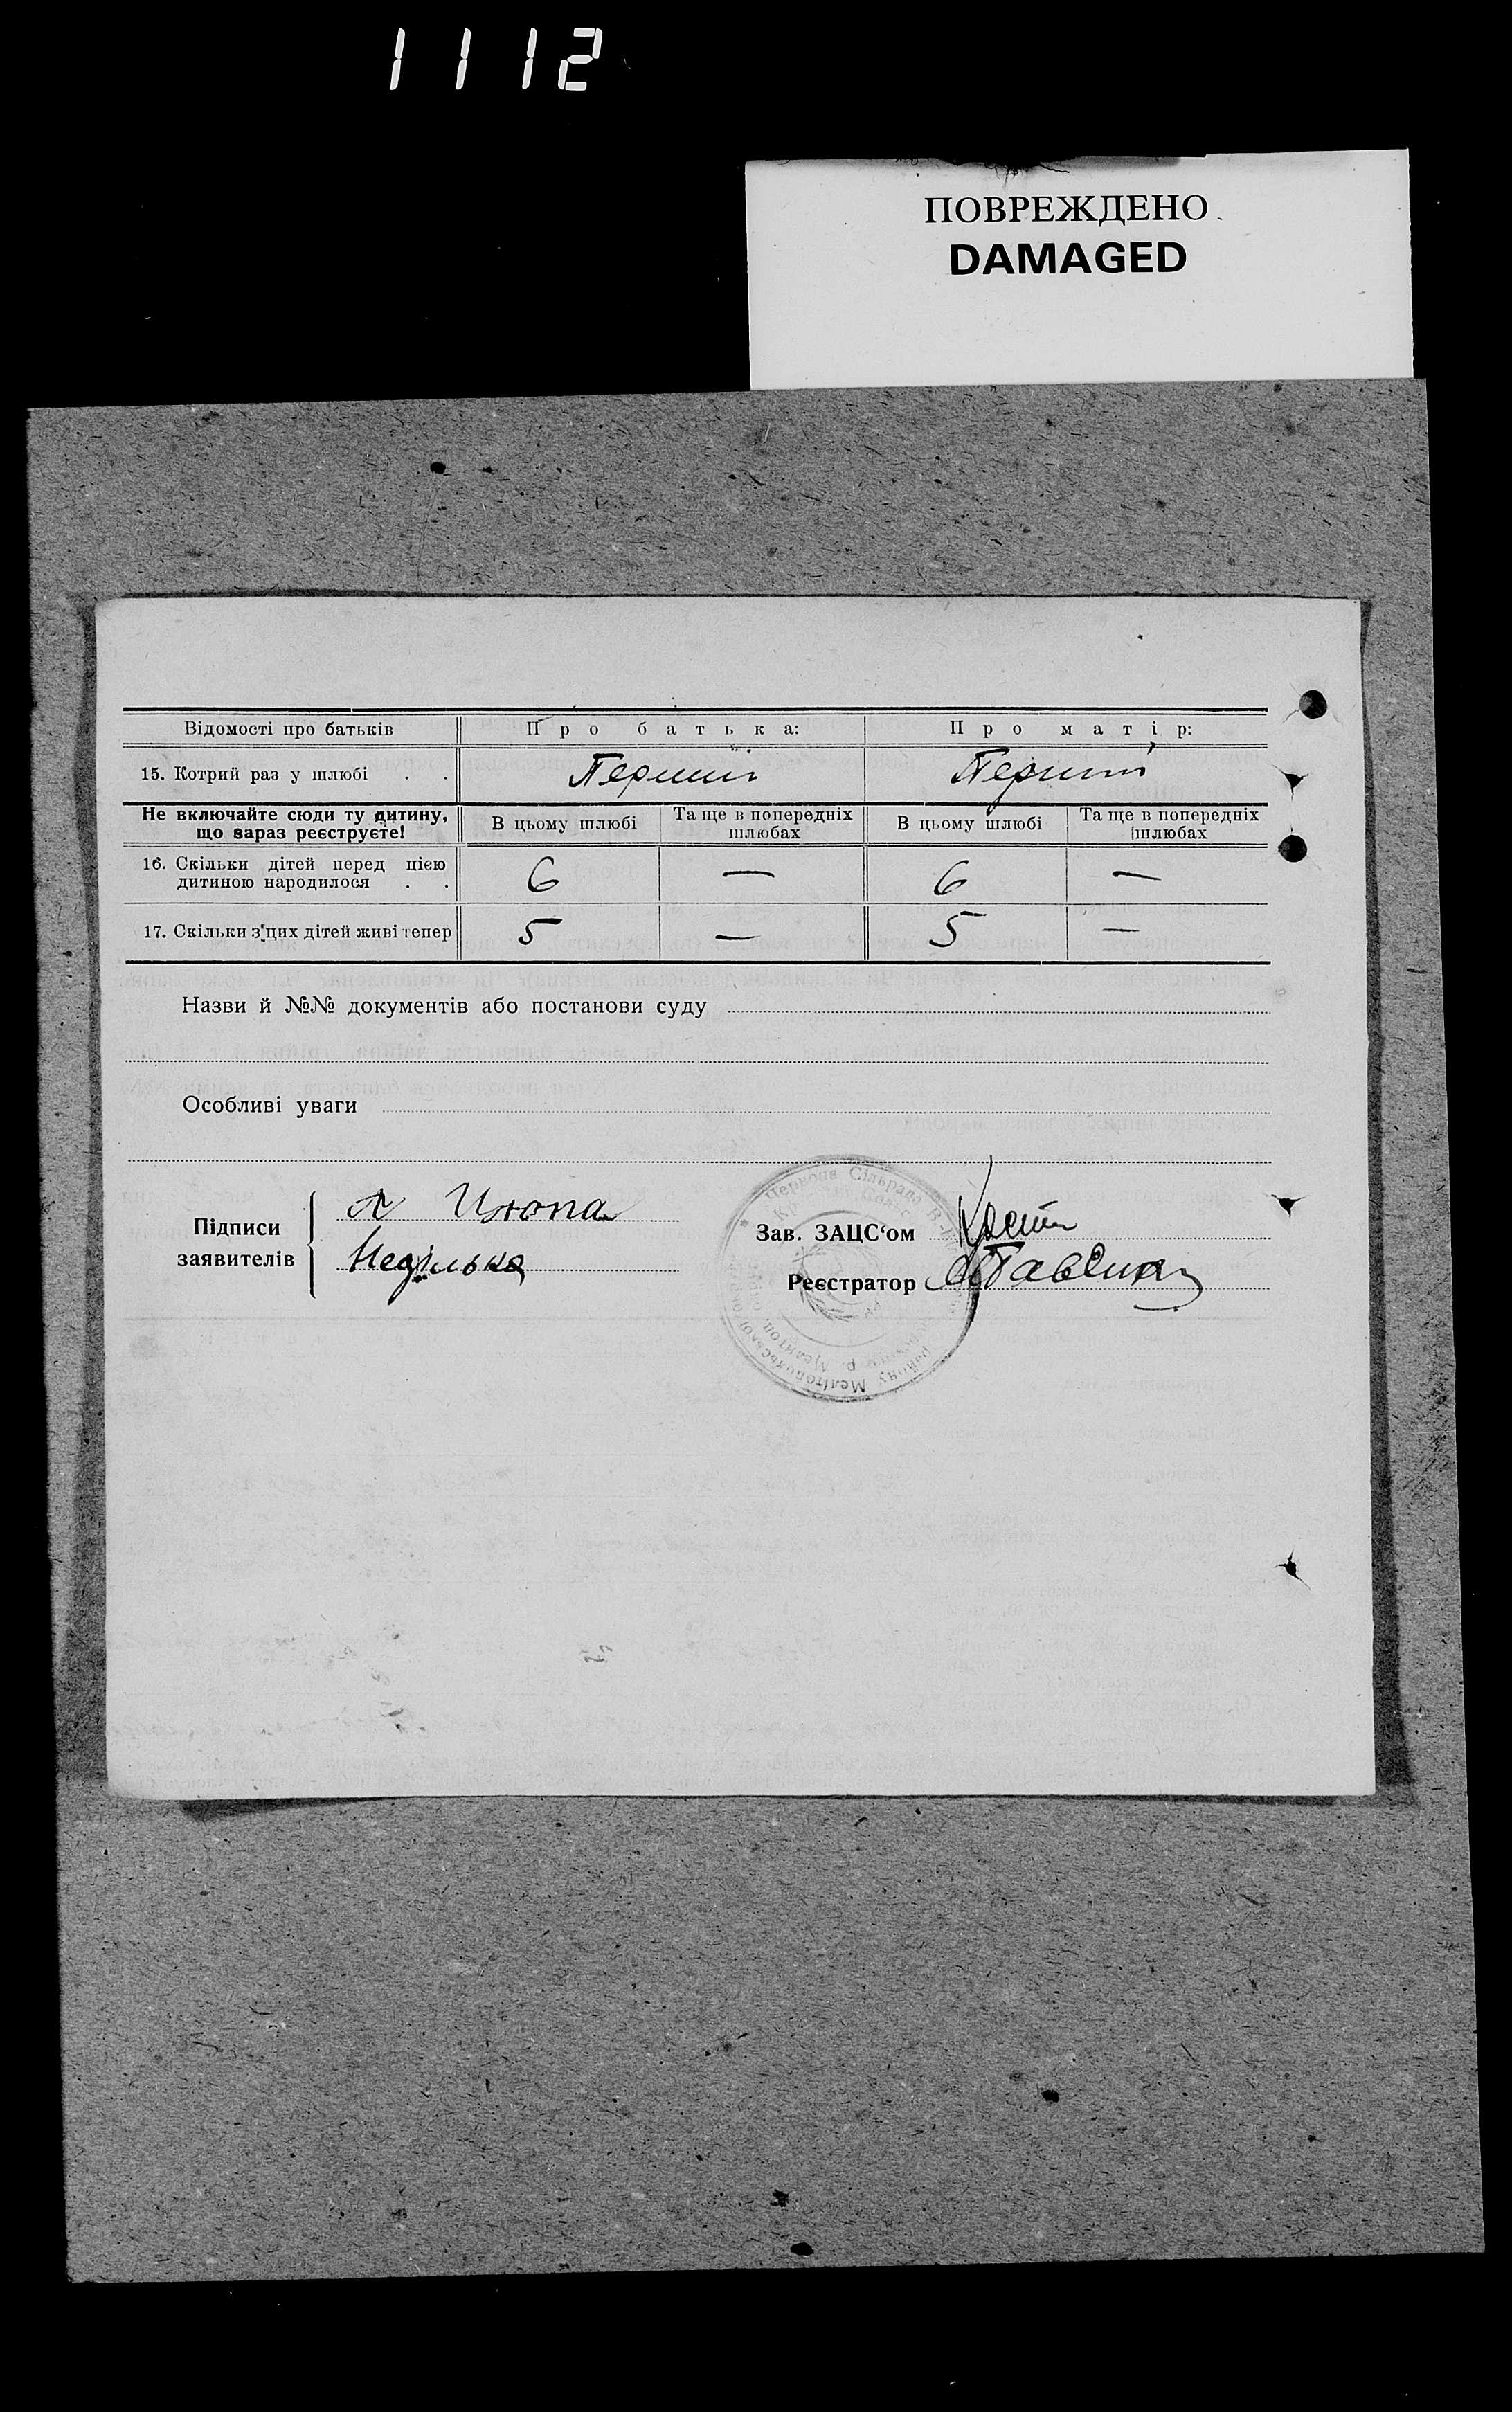 1112
ПОВРЕЖДЕНО
DAMAGED
Відомості про батьків Про батька: Про матір:
15. Котрий раз у шлюбі . . Перший Перший
Не включайте сюди ту дитину, що вараз реєструєте! В цьому шлюбі Та ще в попередніх шлюбах В цьому шлюбі Та ще в попередніх шлюбах
16. Скільки дітей перед цією
дитиною народилося . . 6 — 6 —
17. Скільки з'цих дітей живі тепер 5 — 5 —
Назви й №№ документів або постанови суду
Особливі уваги
Підписи
заявителів
Цюпа
Неділька
Червона Сільрада
району Мелітопольської
Зав. ЗАЦС‘ом
Реєстратор